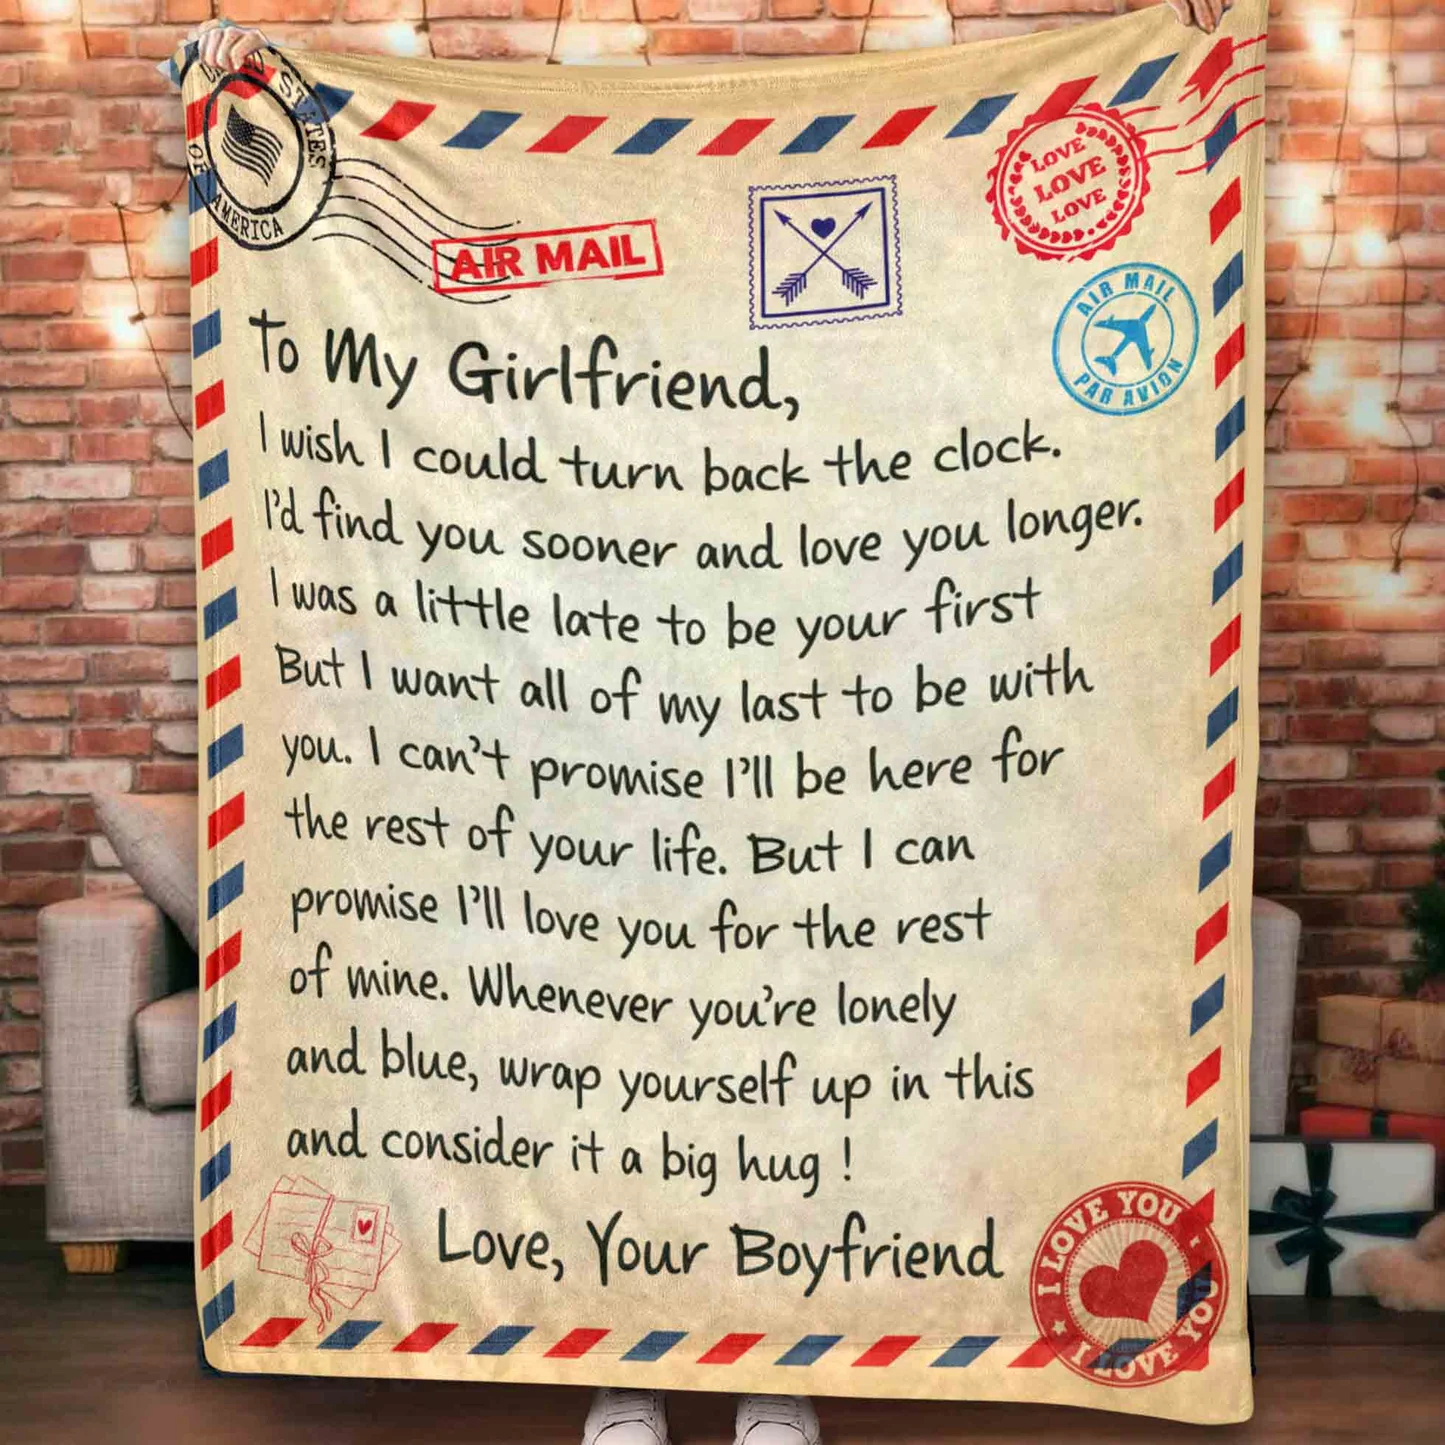 UNITED STATES
OF AMERICA
AIR MAIL
LOVE
LOVE
LOVE
AIR MAIL
PAR AVION
To My Girlfriend,
I wish I could turn back the clock.
I'd find you sooner and love you longer.
I was a little late to be your first
But I want all of my last to be with
you. I can't promise I'll be here for
the rest of your life. But I can
promise I'll love you for the rest
of mine. Whenever you're lonely
and blue, wrap yourself up in this
and consider it a big hug !
Love, Your Boyfriend
I LOVE YOU
I LOVE YOU